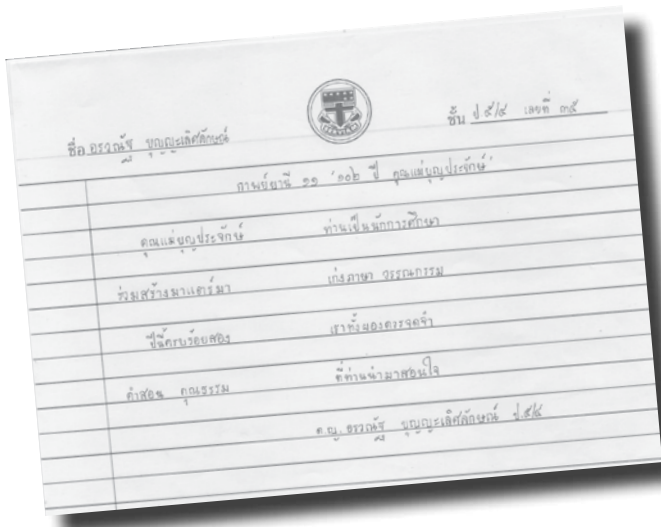 ชื่อ อรวณัฐ บุญญะเลิศลักษณ์ ชั้น ป.๕/๔ เลขที่ ๓๕
กาพย์ยานี ๑๑ "๑๐๒ ปี คุณแม่บุญประจักษ์"
คุณแม่บุญประจักษ์ ท่านเป็นนักการศึกษา
ร่วมสร้างมาแตร์มา เก่งภาษา วรรณกรรม
ปีนี้ครบร้อยสอง เราทั้งผองควรจดจำ
คำสอน คุณธรรม ที่ท่านนำมาสอนใจ
ด.ญ. อรวณัฐ บุญญะเลิศลักษณ์ ป.๕/๔